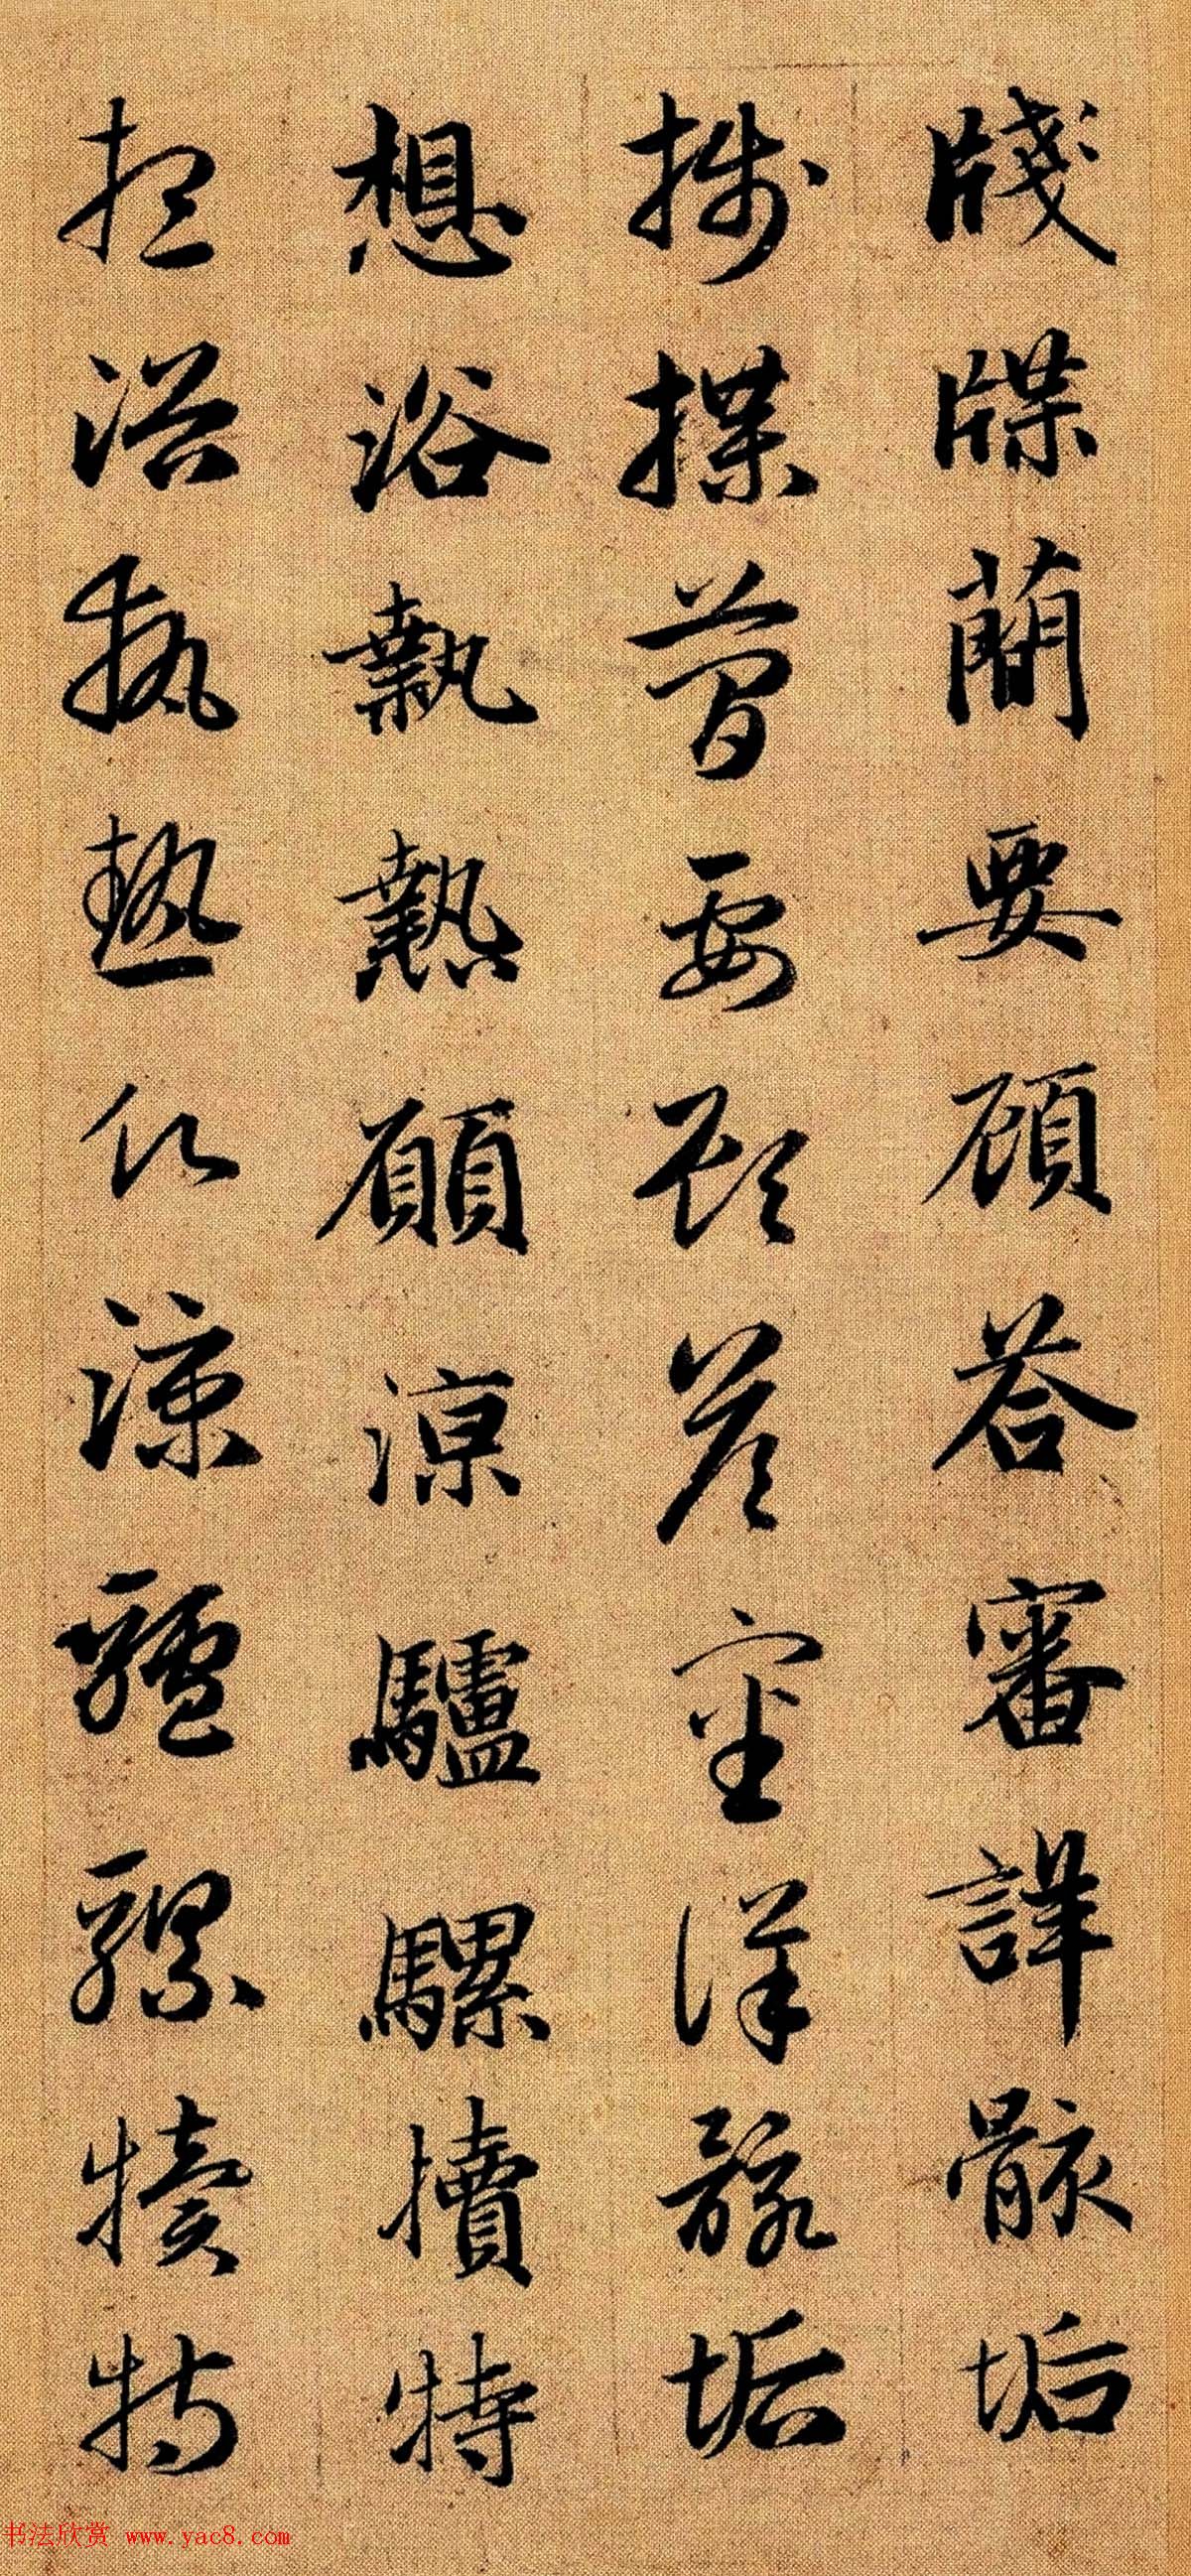 牋牒蕳要顧荅審詳骸垢
牋牒蕳要顧荅審詳骸垢
想浴執熱願涼驢騾犢特
想浴執熱願涼驢騾犢特
书法欣赏 www.yac8.com